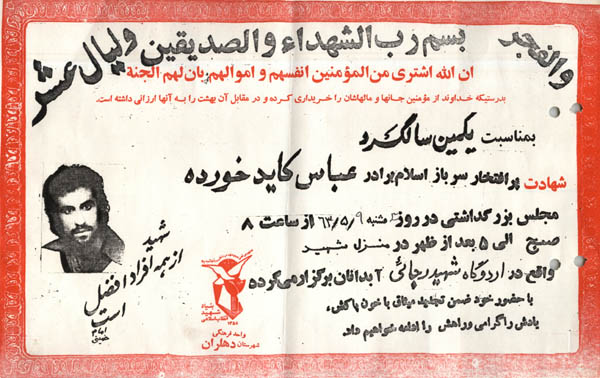 والفجر
بسم رب الشهداء والصدیقین
ولیال عشر
ان الله اشتری من المؤمنین انفسهم و اموالهم بان لهم الجنة
بدرستیکه خداوند از مؤمنین جانها و مالهاشان را خریداری کرده و در مقابل آن بهشت را به آنها ارزانی داشته است.
بمناسبت یکمین سالگرد
شهادت پر افتخار سرباز اسلام برادر عباس کاید خورده
مجلس بزرگداشتی در روز شنبه ۶۳/۵/۹ از ساعت ۸
صبح الی ۵ بعد از ظهر در منزل شهید
واقع در اردوگاه شهید رجائی ۲ بدانان برگزار می گردد
با حضور خود ضمن تجدید میثاق با خون پاکش،
یادش را گرامی و راهش را ادامه خواهیم داد.
شهید
از همه افراد افضل
است
امام
خمینی
بنیاد
شهید
انقلاب اسلامی
۱۳۵۸
واحد فرهنگی
شهرستان دهلران